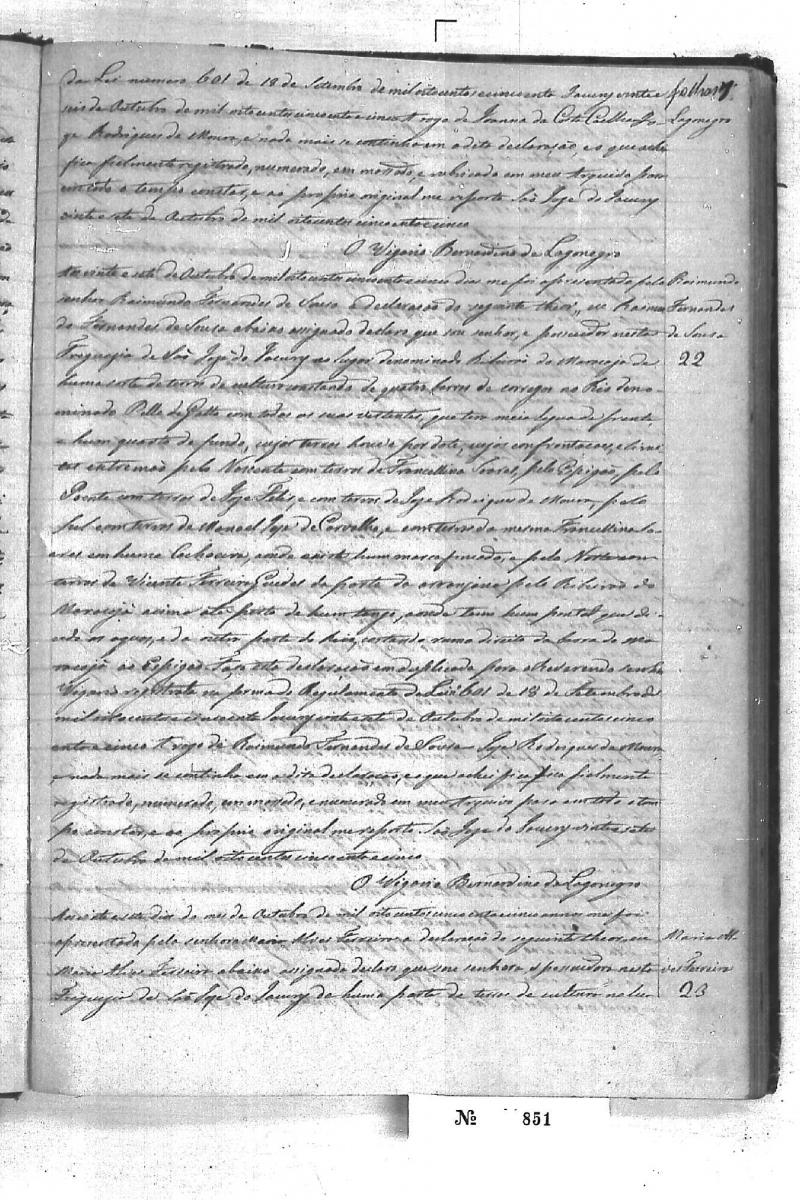 folhas 7.
da Lei numero 601 de 18 de Setembro de mil oito centos e cincoenta Jacury vinte e
seis de Outubro de mil oito centos cincoenta e cinco A rogo de Joanna da Costa
Lagonegro
Rodrigues de Moura, e nada mais se continha em a dita declaração, e o que achei
fica fielmente registrado, numerado, em meu Arquivo para
em todo o tempo constar, e ao proprio original me reporto São Jose do Jacury
vinte e sete de Outubro de mil oito centos cincoenta e cinco
O Vigario Bernardino de Lagonegro
Aos vinte e sete de Outubro de mil oito centos cincoenta e cinco dias me foi apresentada pelo
Raimundo
senhor Raimundo Fernandes de Sousa a declaração do seguinte theor, eu Raimun
Fernandes
do Fernandes de Sousa abaixo assignado declaro que sou senhor, e possuidor nesta
de Sousa
Freguezia de São Jose do Jacury no lugar denominado Ribeirão do Maracujá de
22
huma sorte de terras de cultura constando de quatro barras de corregos no Rio deno-
minado Pelle de Gatto com todas as suas vertentes, que tem meia legua de frente,
e hum quarto de fundo, cujas terras houve por dote, cujas confrontacoes, e
extremão pelo Nascente com terras de Francellina Soares, pelo Espigão, pelo
Poente com terras de Jose Felis, e com terras de Jose Rodrigues de Moura, pelo
Sul com terras de Manoel Jose de Carvalho, e com terras da mesma Francellina So-
ares em huma Cachoeira, aonde existe hum marco fincado, e pelo Norte com
terras de Vicente Ferreira Guedes da parte do pelo Ribeirão do
Maracujá acima até perto de hum tanque, aonde tem hum pontal que di-
vide as agoas, e da outra parte do Rio, cortando rumo direito da barra do Ma-
racujá ao Espigão. Faço esta declaração em duplicada para o Reverendo senhor
Vigario registrala na forma do Regulamento da Lei 601 de 18 de Setembro de
mil oito centos e cincoenta Jacury vinte e sete de Outubro de mil oito centos cinco
enta e cinco A rogo de Raimundo Fernandes de Sousa Jose Rodrigues de Moura
e nada mais se continha em a dita declaração, e o que achei fica fica fielmente
registrado, numerado, e numerado em meu Arquivo para em todo o tem
po constar, e ao proprio original me reporto São Jose do Jacury vinte e sete
de Outubro de mil oito centos cincoenta e cinco
O Vigario Bernardino de Lagonegro
Aos vinte e sete dias do mes de Outubro de mil oito centos cincoenta e cinco annos me foi
apresentada pela senhora Maria Alves Ferreira a declaração do seguinte theor, eu
Maria Al-
Maria Alves Ferreira abaixo assignada declaro que sou senhora, e possuidora nesta
ves Ferreira
Freguezia de São Jose do Jacury de huma parte de terras de cultura no lu-
23
№ 851